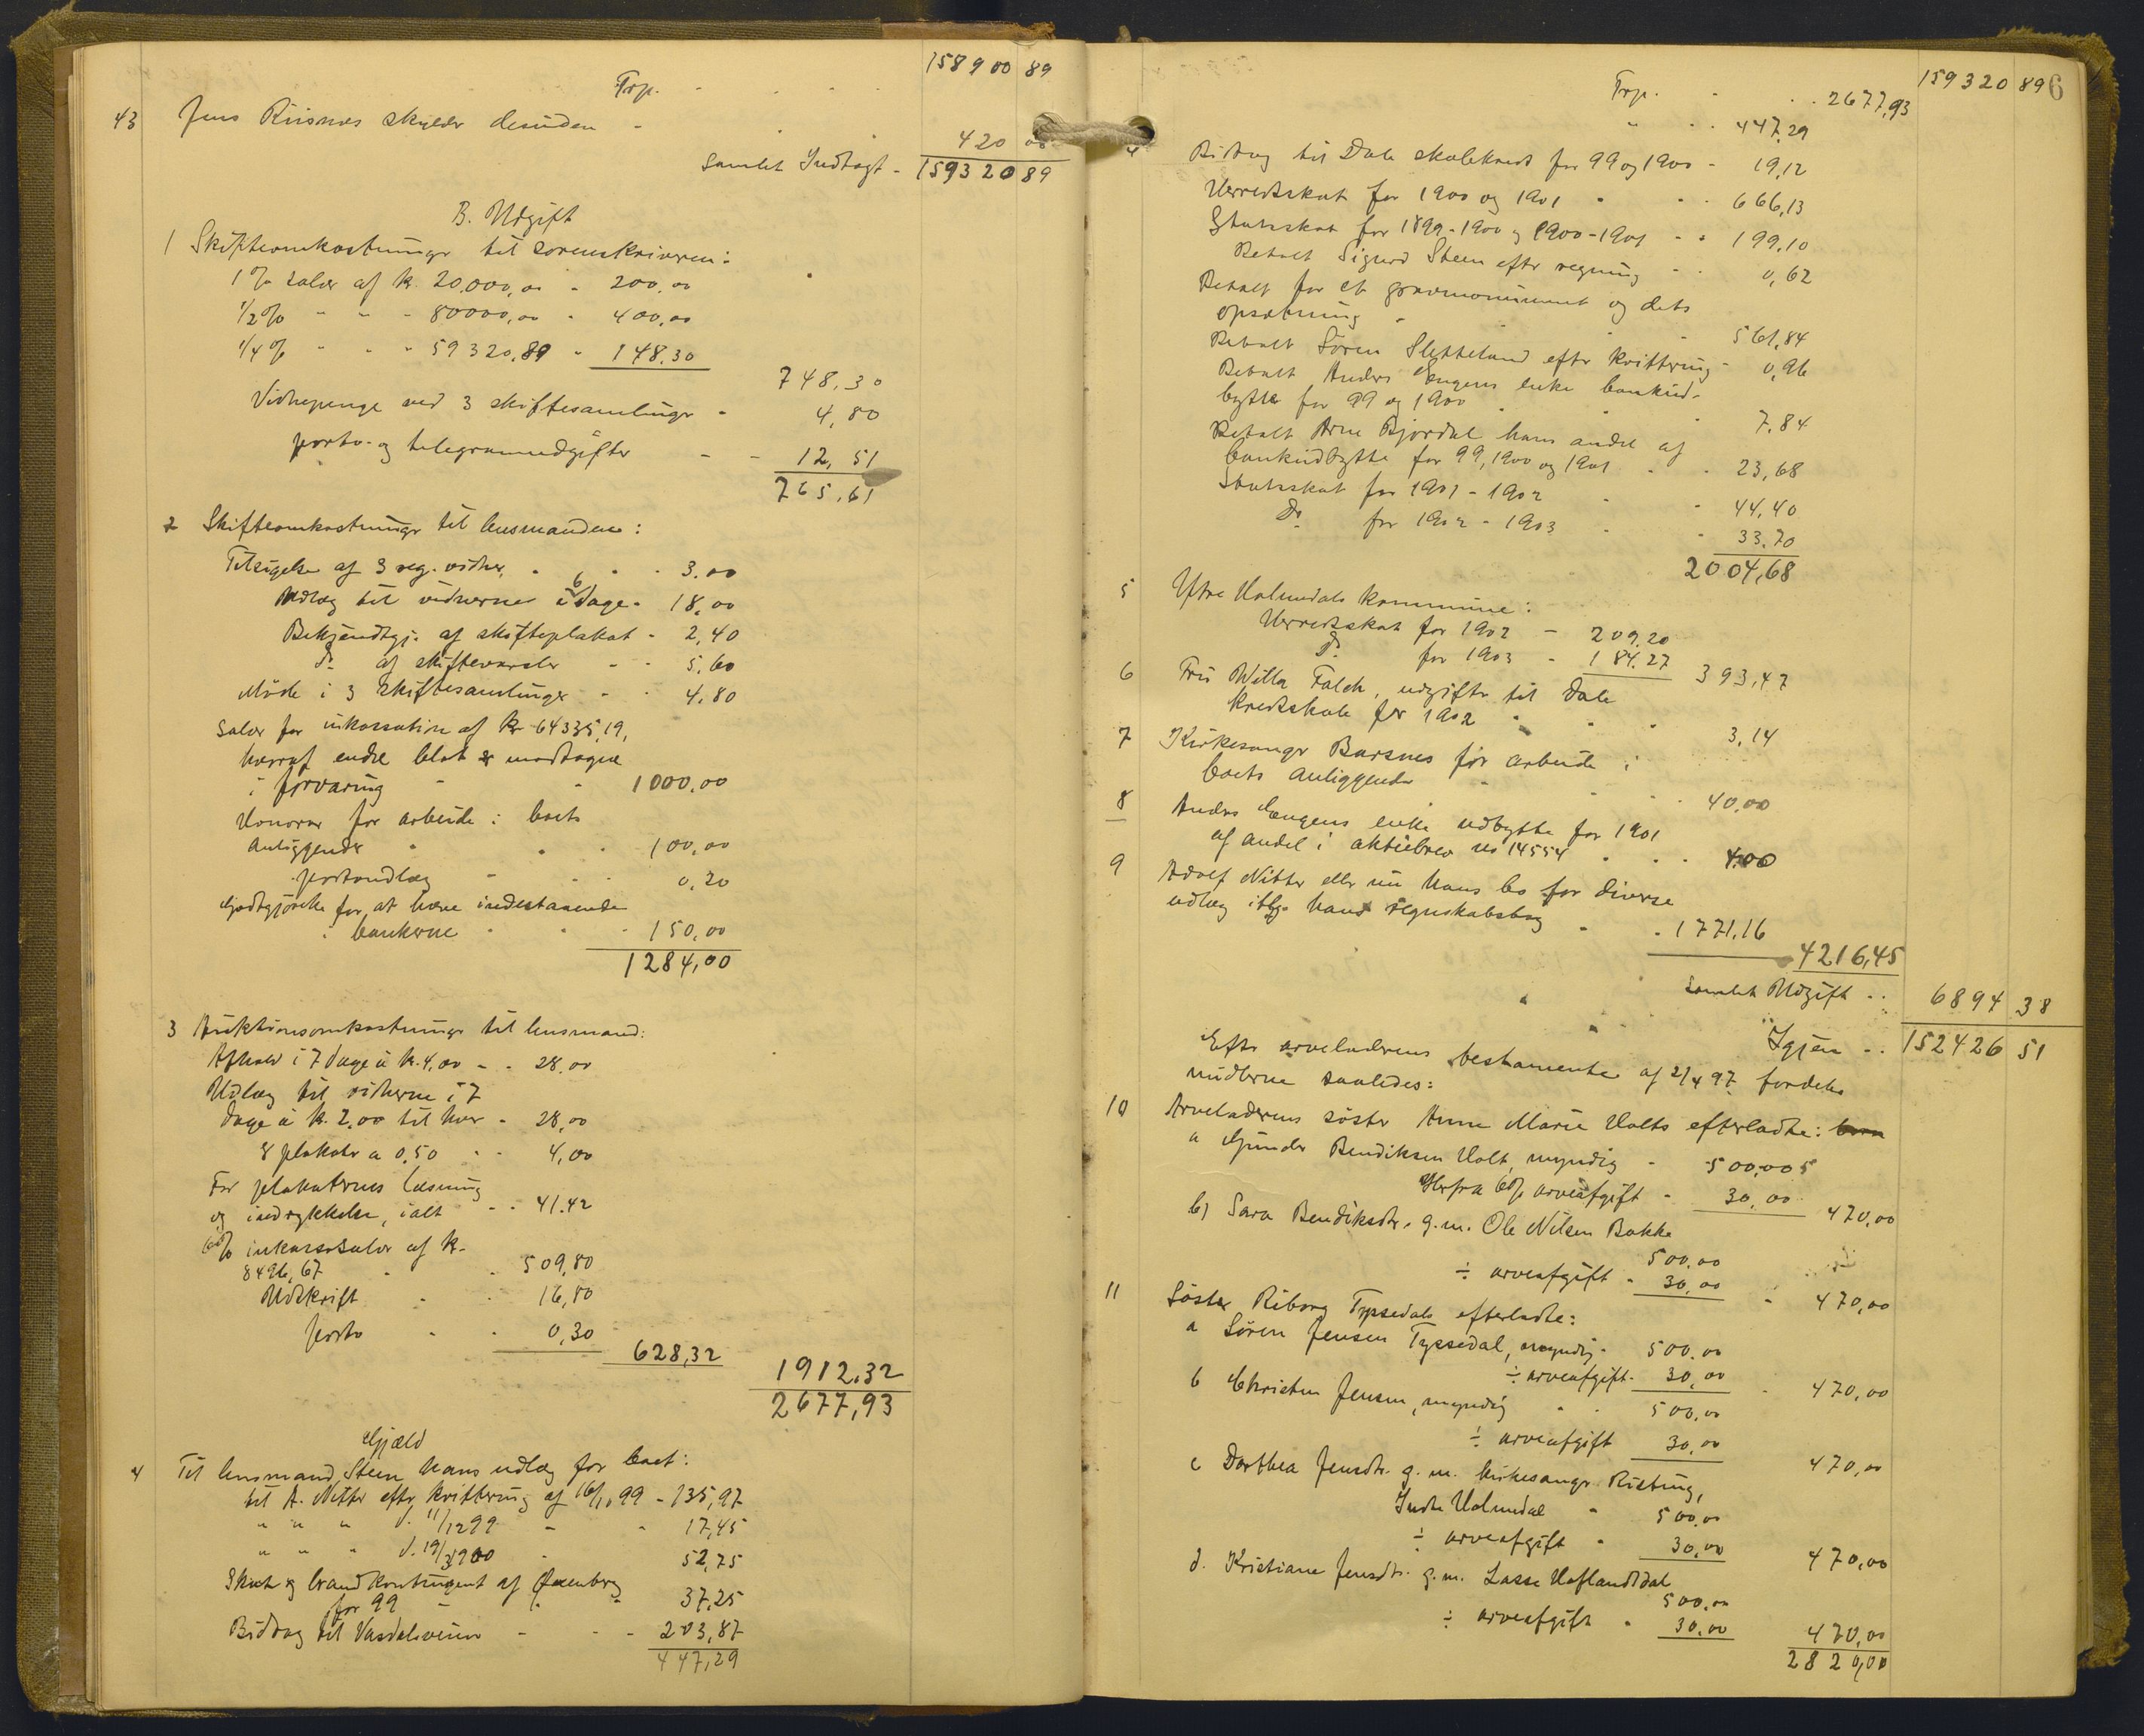 Trp. 158900 89
43 Jens Riisnes skylder desuden - 420 00
Samlet Indtægt - 159320 89
B. Udgift
1 Skifteomkostninger til sorenskriveren:
1% salær af kr. 20.000,00 - 200,00
1/2% " " - 80000,00 - 400,00
1/4% " " " 59320,89 - 148,30
748,30
Vidnepenge ved 3 skiftesamlinger - 4,80
porto- og telegramudgifter - - 12,51
765,61
2 Skifteomkostninger til lensmanden:
Tilsigelse af 3 reg. vidner - 3.00
Udlæg til vidnerne i 6 dage - 18,00
Bekjendtgj. af skifteplakat - 2,40
do af skiftevarsler - - 5,60
Møde i 3 skiftesamlinger - 4,80
Salær for inkassation af kr 64335,19,
hvoraf endel blot er modtagne
i forvaring - 1000,00
Honorar for arbeide i boets
anliggender - 100,00
portoudlæg - 0,20
Godtgjørelse for at hæve indestaaende
i bankerne - 150,00
1284,00
3 Auktionsomkostninger til lensmand:
Afhold i 7 dage à kr. 4,00 - - 28.00
Udlæg til vidnerne i 7
dage à kr. 2,00 til hver - 28,00
8 plakater a 0,50 - - 4,00
For plakaternes læsning
og indrykkelse, ialt - - 41.42
6% inkassosalær af kr.
8496,67 - 509,80
Udskrift - 16,80
porto - 0,30
628,32 1912,32
2677,93
Gjæld
4 Til lensmand Steen hans udlæg for boet:
til A. Nitter efter kvittering af 16/10 99 - 135,97
" " " d. 11/12 99 - 17,45
" " " d. 19/3 1900 52,75
Skat og brandkontingent af Øxenberg
for 99 - 37,25
Bidrag til Vasdalsveien - - - 203,87
447,29
6
Trp. 2677,93 159320 89
" 447,29
4 Bidrag til Dale skolekreds for 99 og 1900 - 19,12
Herredsskat for 1900 og 1901 - 666,13
Statsskat for 1899-1900 og 1900-1901 - - 199,10
Betalt Sigurd Steen efter regning - - 0,62
Betalt for et gravmonument og dets
opsætning - 561,84
Betalt Søren Sletteland efter kvittering - 0,96
Betalt Anders Engens enke bankud-
bytte for 99 og 1900 7,84
Betalt Arne Bjordal hans andel af
bankudbytte for 99, 1900 og 1901 - 23,68
Statsskat for 1901-1902 - 44,40
Do for 1902-1903 - 33,70
2004,68
5 Ytre Holmedals kommune:
Herredsskat for 1902 - 209,20
do for 1903 - 184,27 393,47
6 Fru Willa Falch, udgifter til Dale
kredsskole for 1902 - 3,14
7 Kirkesanger Barsnes for arbeide i
boets anliggender - 40,00
8 Anders Engens enke udbytte for 1901
af andel i aktiebrev no 14554 - 4,00
9 Adolf Nitter eller nu hans bo for diverse
udlæg iflg. hans regnskabsbog - 1771,16
4216,45
Samlet Udgift - - 6894 38
Igjen - - 152426 51
Efter arveladerens testamente af 2/4 97 fordeles
midlerne saaledes:
10 Arveladerens søster Anne Marie Holts efterladte: børn
a Gunder Bendiksen Holt, myndig - 500,00
Herfra 6% arveafgift - 30,00 470,00
b) Sara Bendiksdtr. g.m. Ole Nilsen Bakke
500,00
÷ arveafgift - 30,00 - 470,00
11 Søster Riborg Tyssedals efterladte:
a Søren Jensen Tyssedal, myndig - 500,00
÷ arveafgift - 30,00 - 470,00
b Christen Jensen, myndig - - 500,00
÷ arveafgift 30,00 470,00
c Dorthea Jensdtr. g.m. kirkesanger Risting,
Indre Holmedal - 500,00
÷ arveafgift - 30,00 470,00
d. Kristiane Jensdtr. g.m. Lasse Høflandsdal
500,00
÷ arveafgift - 30,00 470,00
2820,00